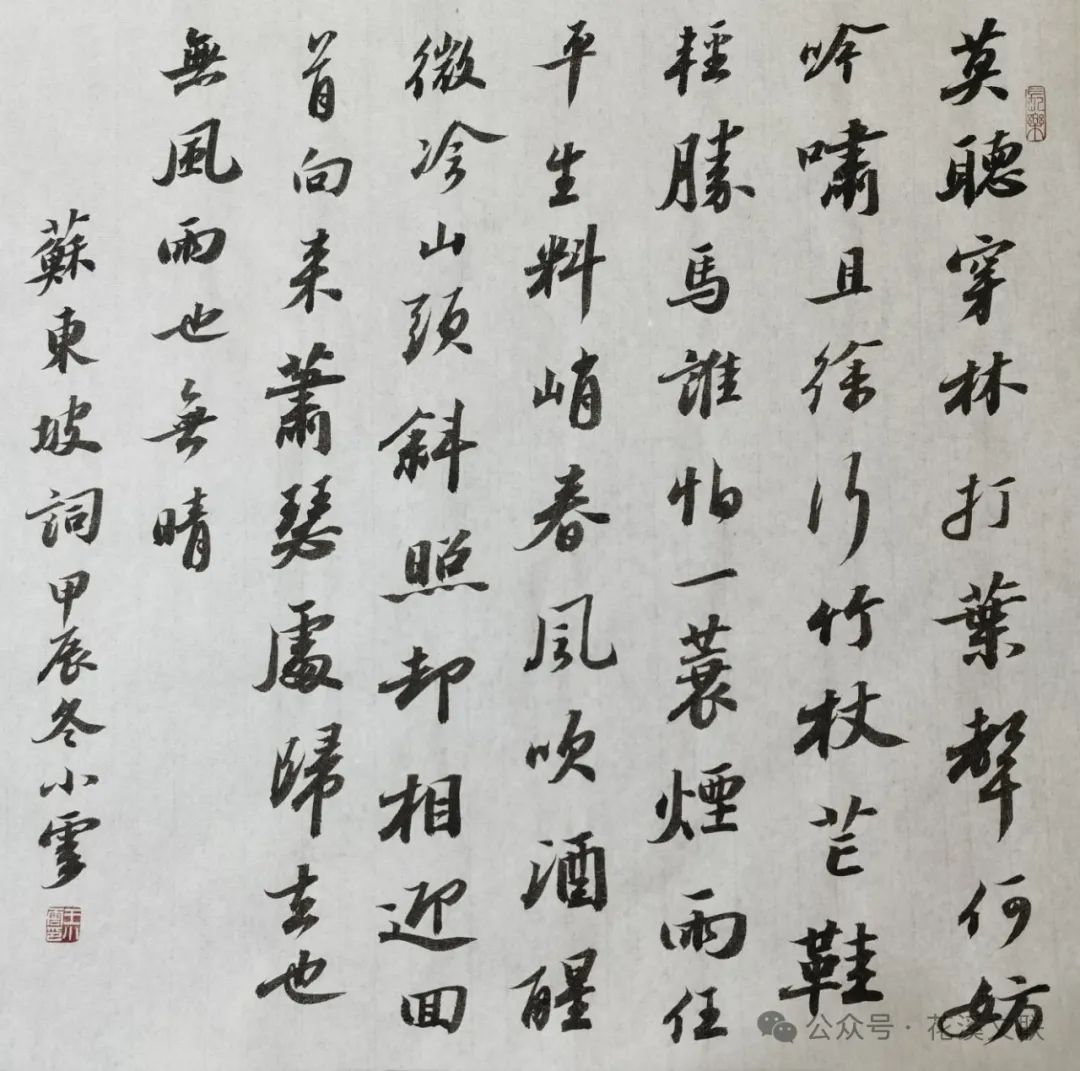 莫聽穿林打葉聲何妨
吟嘯且徐行竹杖芒鞋
輕勝馬誰怕一蓑煙雨任
平生料峭春風吹酒醒
微冷山頭斜照却相迎回
首向来蕭瑟處歸去也
無風雨也無晴
蘇東坡詞甲辰冬小
公众号·花溪文联